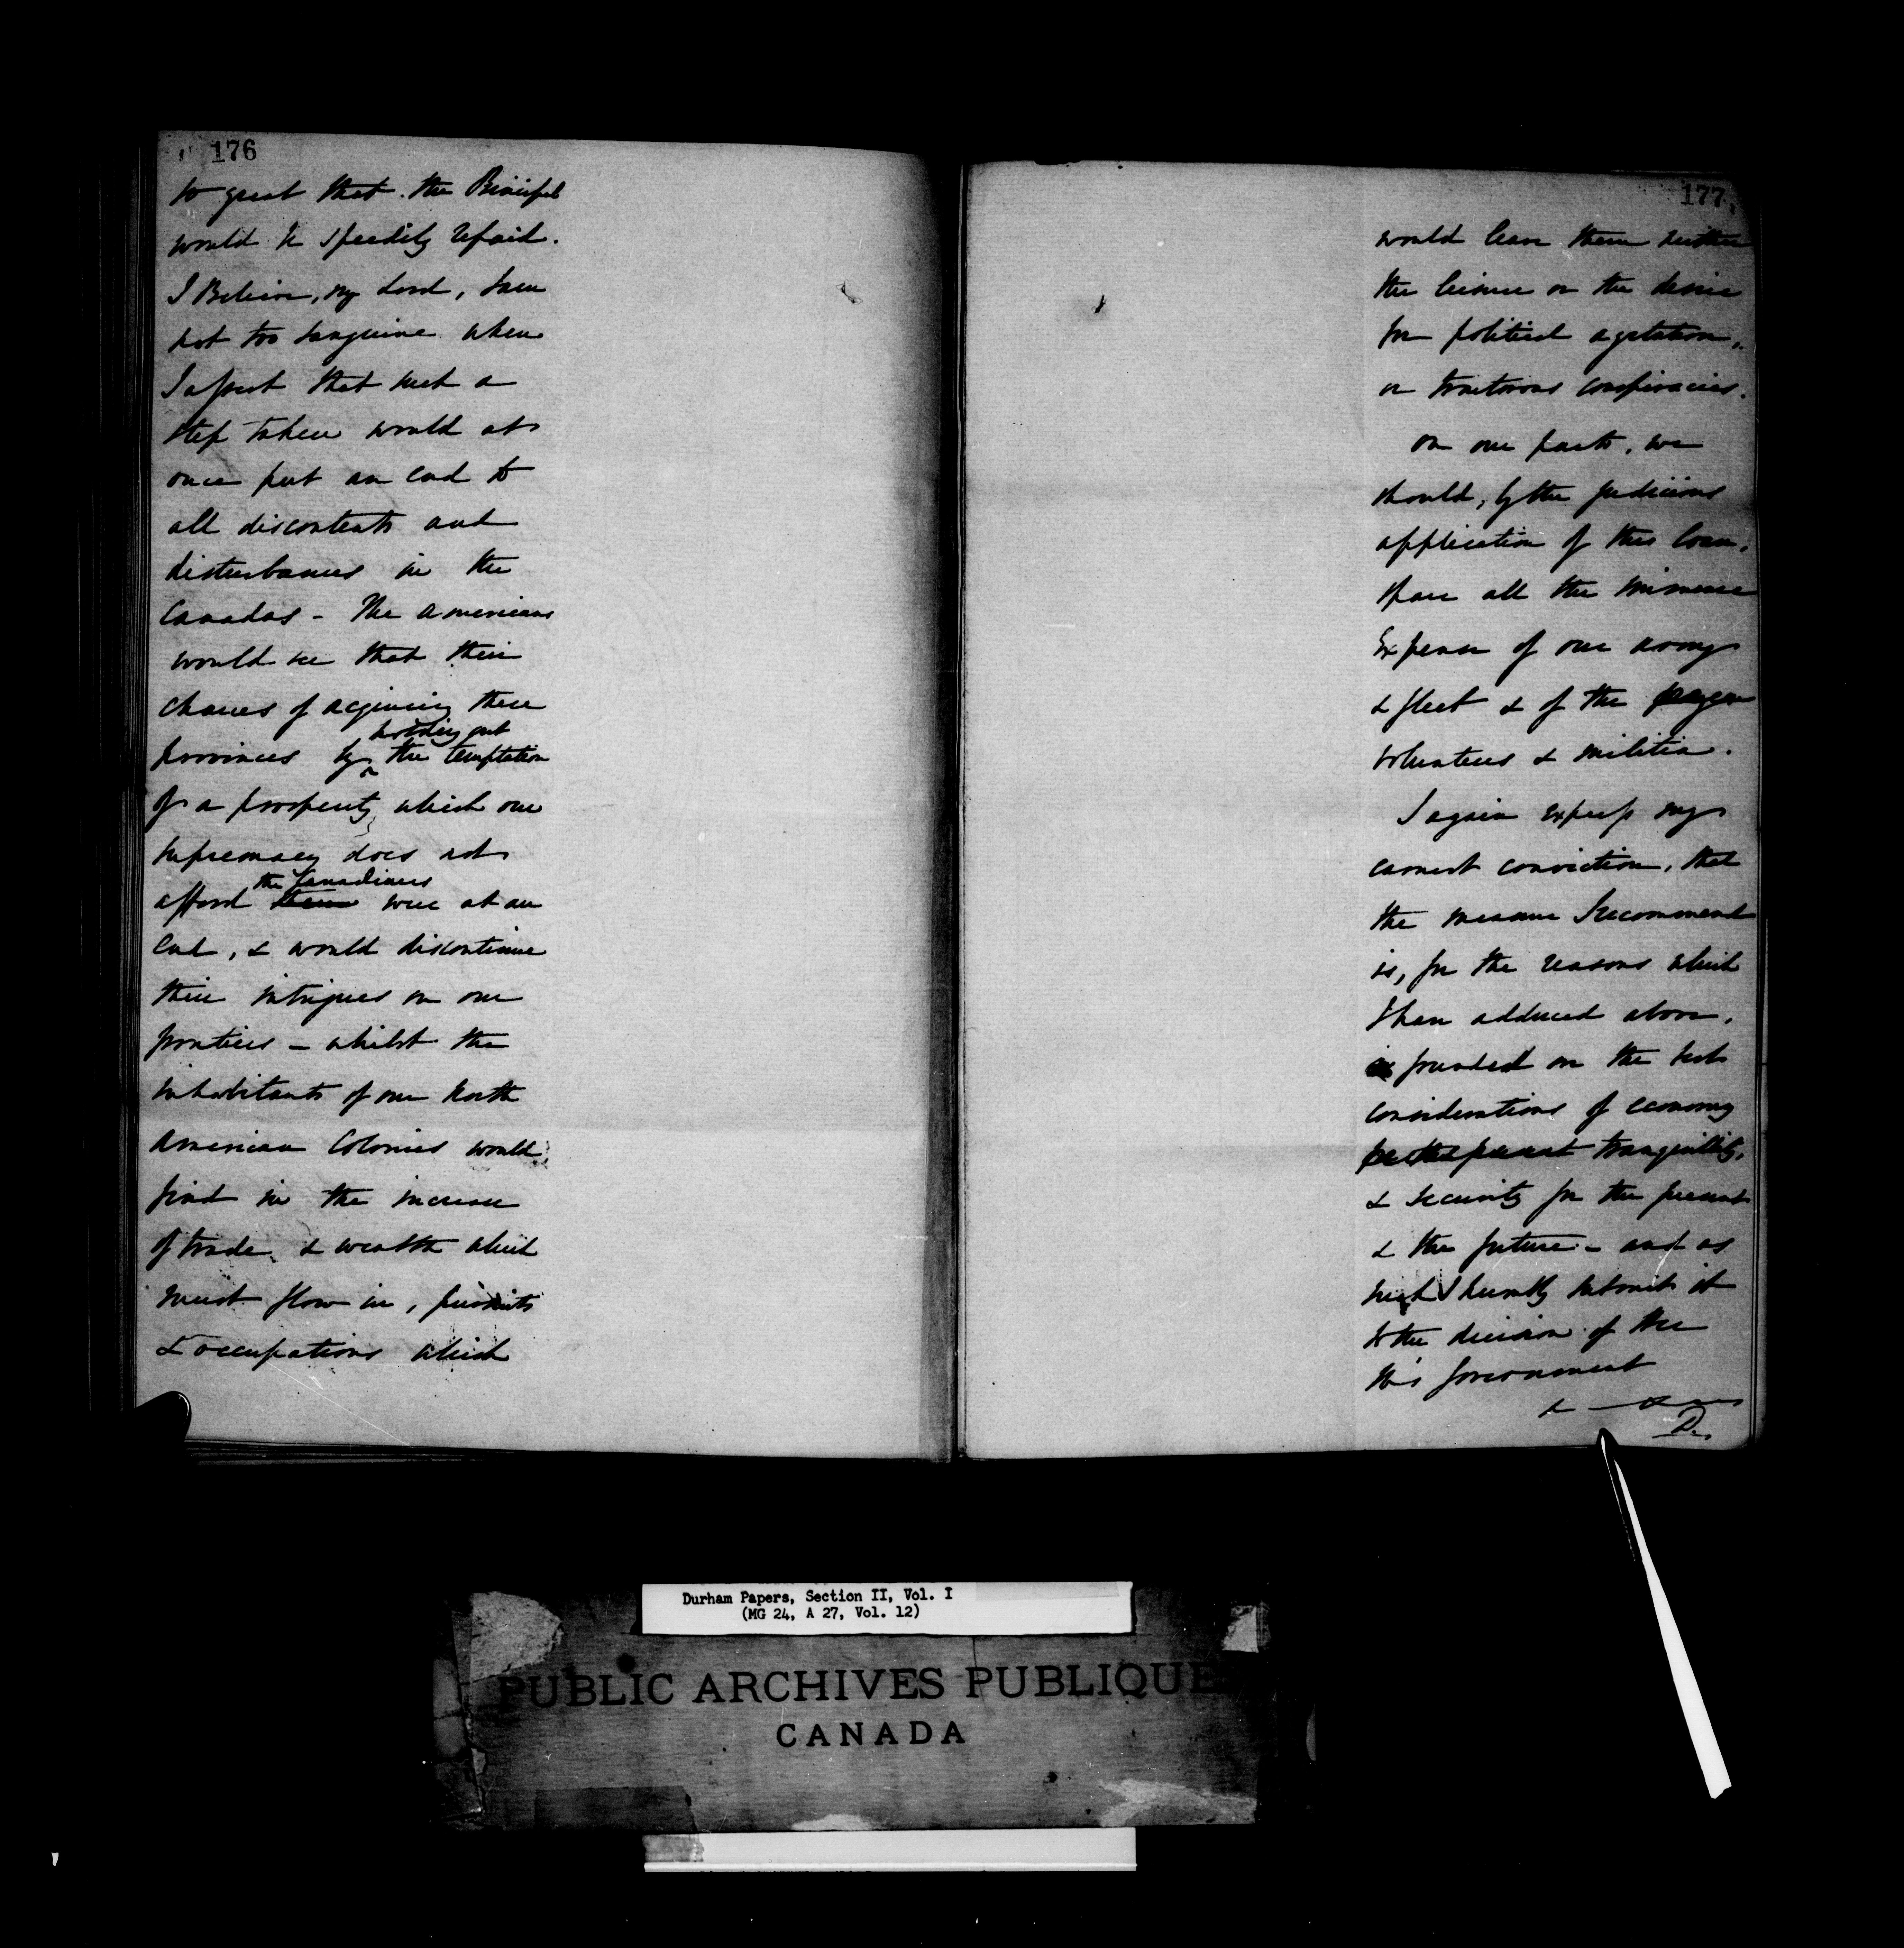 176
so great that the Principal
would be speedily repaid.
I Believe, my Lord, I am
not too sanguine when
I assert that such a
step taken would at
once put an end to
all discontents and
disturbances in the
Canadas - The Americans
would see that their
chances of acquiring these
holding out
provinces by the temptation
of a prosperity which our
supremacy does not
the Canadians
afford them were at an
end, & would discontinue
their intrigues on our
frontiers - whilst the
inhabitants of our North
American Colonies would
find in the increase
of trade & wealth which
must flow in, pursuits
& occupations which
177.
would leave them neither
the leisure or the desire
for political agitation,
or traitorous conspiracies.
On our parts, we
should, by the judicious
application of this loan,
spare all the immense
Expense of our army
& fleet & of the
volunteers & militia.
I again express my
earnest conviction, that
the measure I recommend
is, for the reasons which
I have adduced above,
founded on the best
considerations of economy
tranquillity,
& security for the present
& the future - and as
such I humbly submit it
to the decision of the
Govornment
D.
Durham Papers, Section II, Vol. I
(MG 24, A 27, Vol. 12)
PUBLIC ARCHIVES PUBLIQUE
CANADA